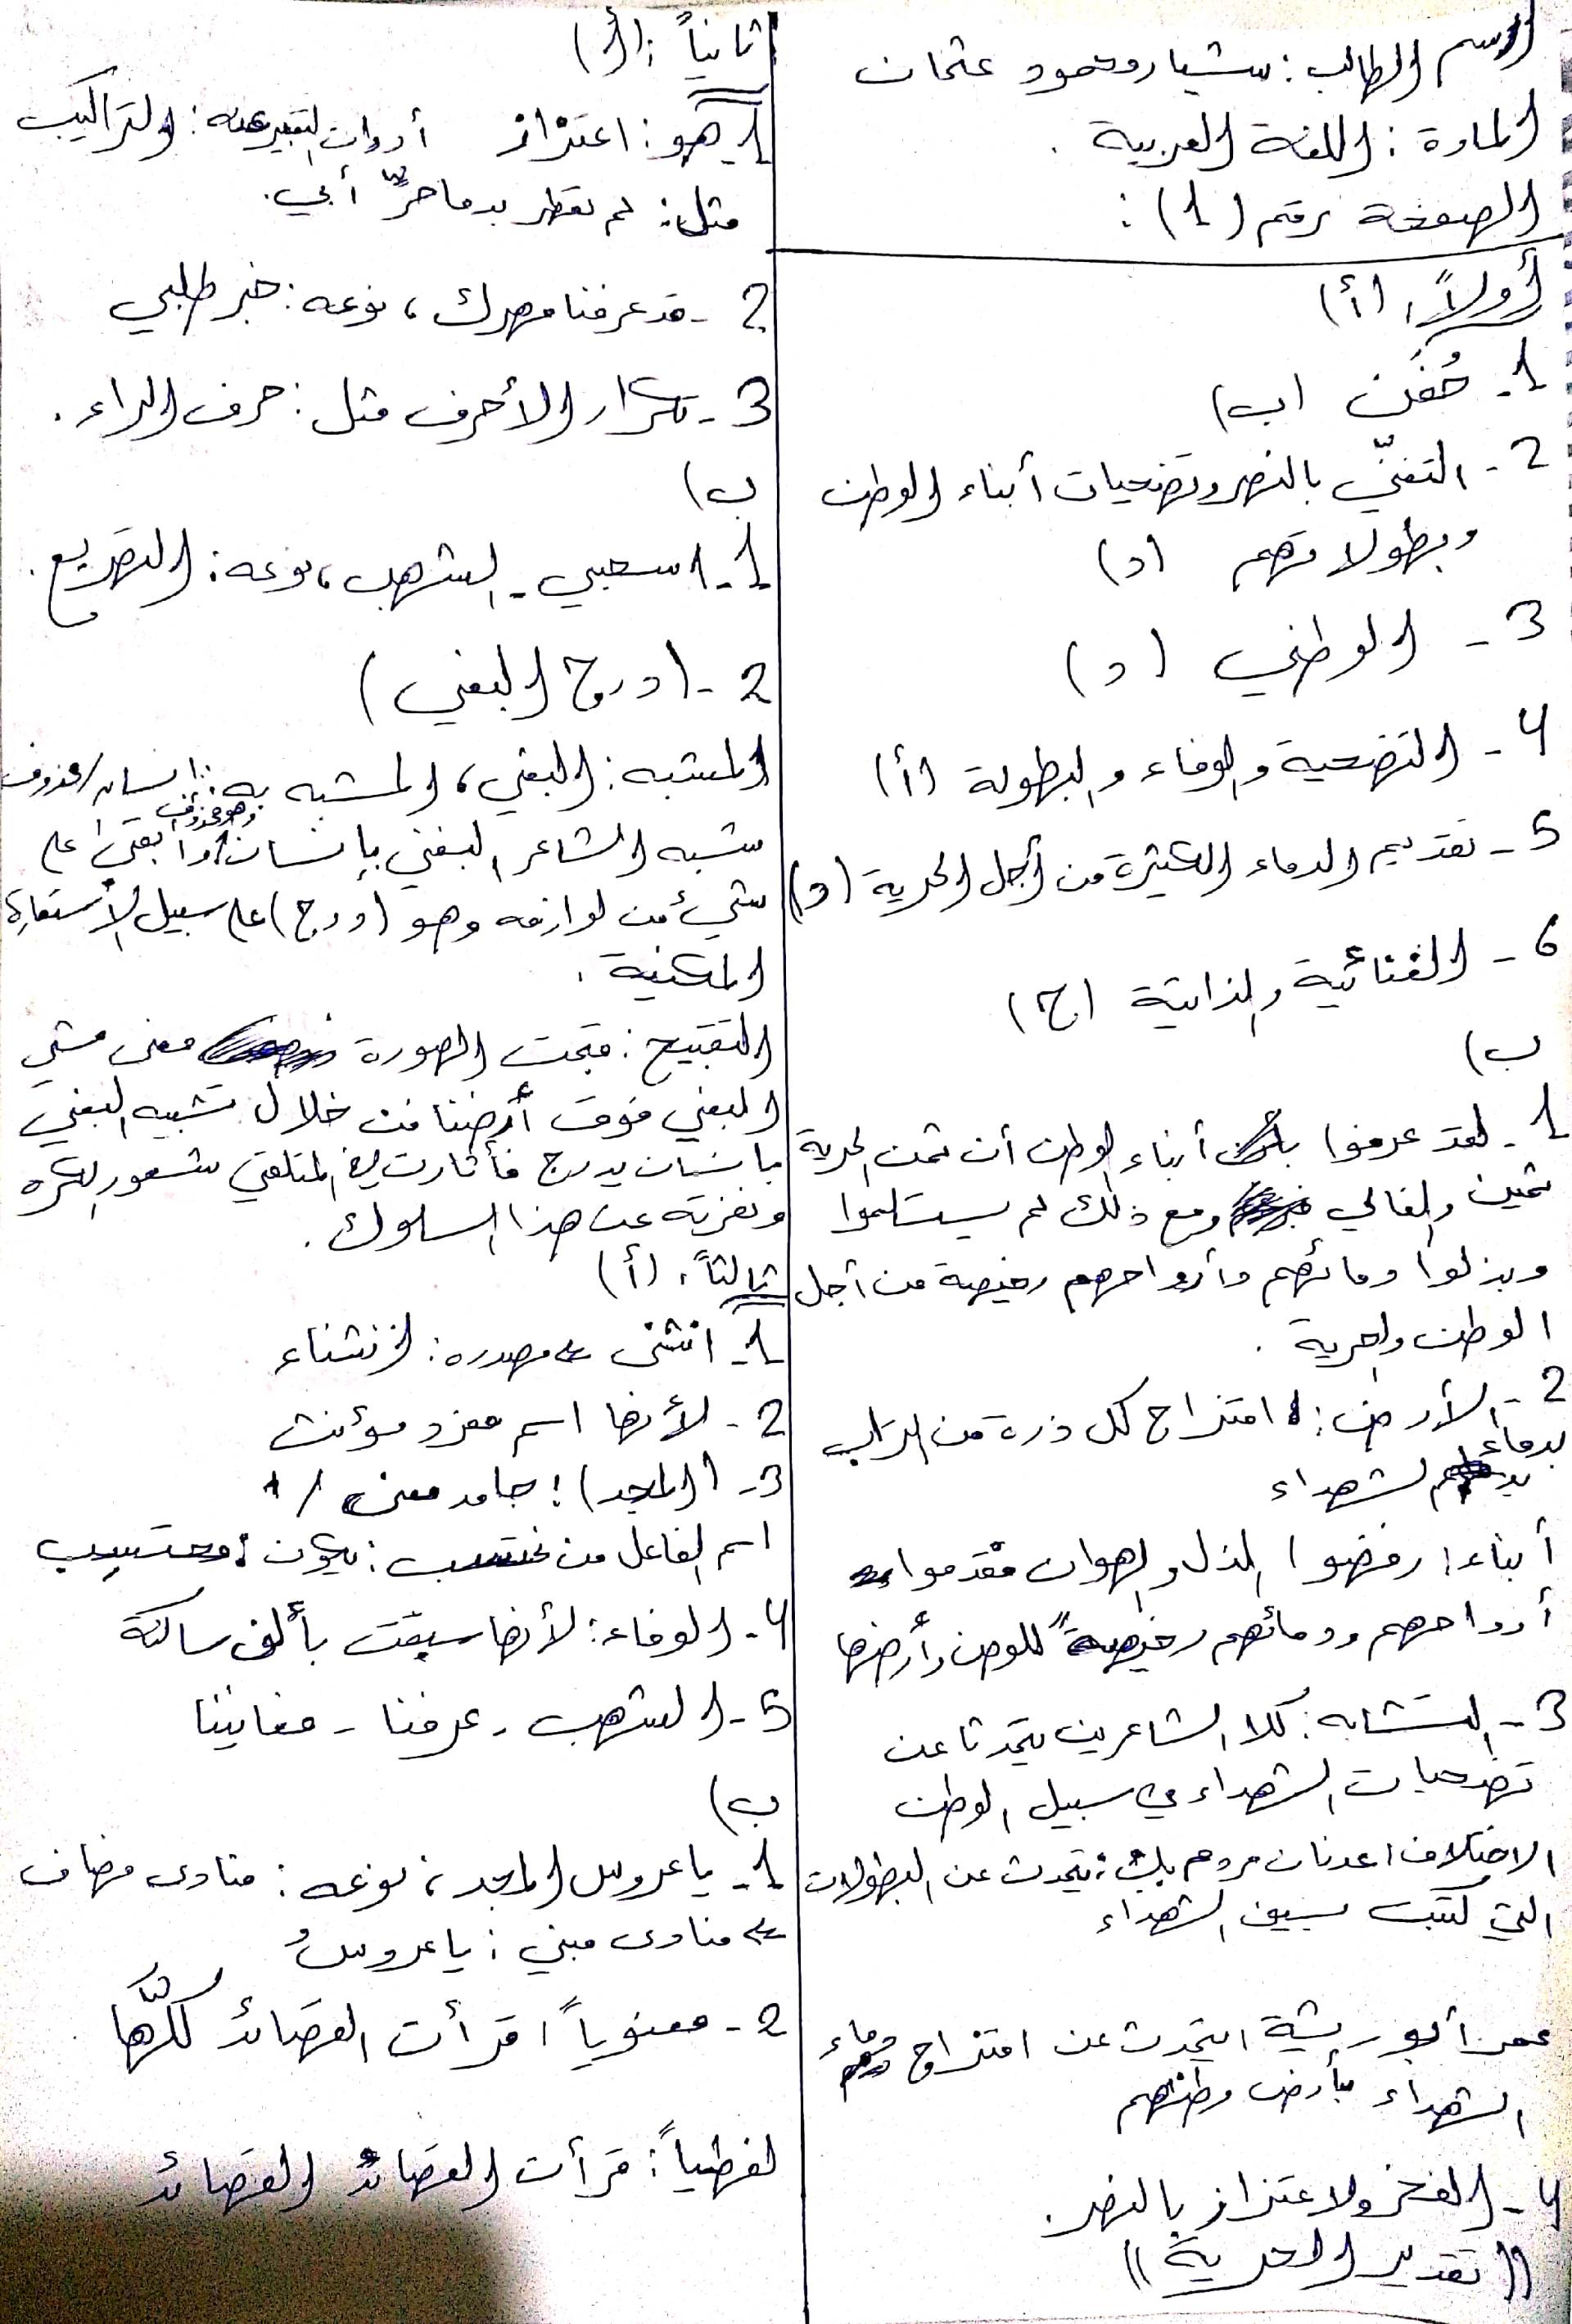 اسم الطالب: شيار محمود عثمان
المادة: اللغة العربية.
الصفحة رقم (1):
أولاً، (أ)
1- حُفَن (ب)
2- التغنّي بالنصر وتضحيات أبناء الوطن
وبطولاتهم (د)
3- الوطني (د)
4- التضحية والوفاء والبطولة (أ)
5- تقديم الدماء الكثيرة من أجل الحرية (د)
6- الغنائية والذاتية (ج)
ب)
1- لقد عرفوا أبناء الوطن أن ثمن الحرية
ثمين والغالي ومع ذلك لم يستسلموا
وبذلوا دمائهم وأرواحهم رخيصة من أجل
الوطن والحرية.
2- الأرض: امتزاج كل ذرة من التراب
بدماء الشهداء
أبناء: رفضوا الذل والهوان فقدموا
أرواحهم ودمائهم رخيصةً للوطن وأرضها
3- التشابه: كلا الشاعرين يتحدثا عن
تضحيات الشهداء في سبيل الوطن
الاختلاف: عدنان مردم بك: يتحدث عن البطولات
التي كتبت بسيف الشهداء
عمر أبو ريشة: يتحدث عن امتزاج دماء
الشهداء بأرض وطنهم
4- الفخر والاعتزاز بالنصر.
((تقدير الحرية))
ثانياً: (أ)
1- هو: اعتزاز أدوات التعبير عنه: التراكيب
مثل: لم تعطر بدما حرٍّ أبي.
2- قد عرفنا مهرك، نوعه: خبر طلبي
3- تكرار الأحرف مثل: حرف الراء.
ب)
1- اسحبي - الشهب، نوعه: التصريع.
2- (درج البغي)
المشبه: البغي، المشبه به: إنسان/محذوف
شبه الشاعر البغي بإنسان وهو محذوف وأبقى على
شيء من لوازمه وهو (درج) على سبيل الأستعارة
المكنية.
التقبيح: قبحت الصورة معنى مشي
البغي فوق أرضنا من خلال تشبيه البغي
بإنسان يدرج فأثارت في المتلقي شعور الكره
ونفرته عن هذا السلوك.
ثالثاً، (أ)
1- انثنى ← مصدره: انثناء
2- لأنها اسم مفرد مؤنث
3- (المجد): جامد معنى /
اسم الفاعل من نحتسب: يكون: محتسِب
4- الوفاء: لأنها سبقت بألف ساكنة
5- الشهب - عرفنا - مغانينا
ب)
1- يا عروس المجد، نوعه: منادى مضاف
← منادى مبني: يا عروسُ
2- معنوياً: قرأت القصائد كلَّها
لفظياً: قرأت القصائد القصائد